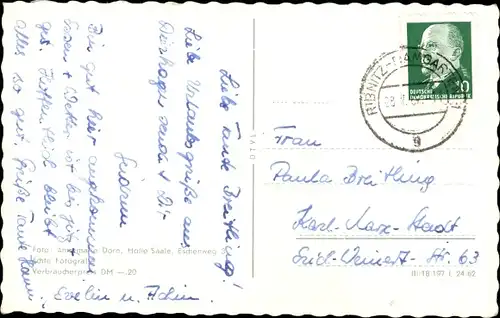 Liebe Tante Breitling!
Liebe Urlaubsgrüße aus
Dierhagen sendet Dir
Bin gut hier angekommen
Essen + Wetter ist bis jetzt
gut. Hoffentlich bleibt
alles so gut. Grüße Tante
Evelin u. Achim.
Foto: Dorn, Halle Saale, Eselsweg
Echte Fotografie
Verbraucherpreis DM —.20
RIBNITZ-DAMGARTEN
g
DEUTSCHE
DEMOKRATISCHE REPUBLIK
10
Frau
Paula Breitling
Karl-Marx-Stadt
Erich-Weinert-Str. 63
III/18/197 L 24/62